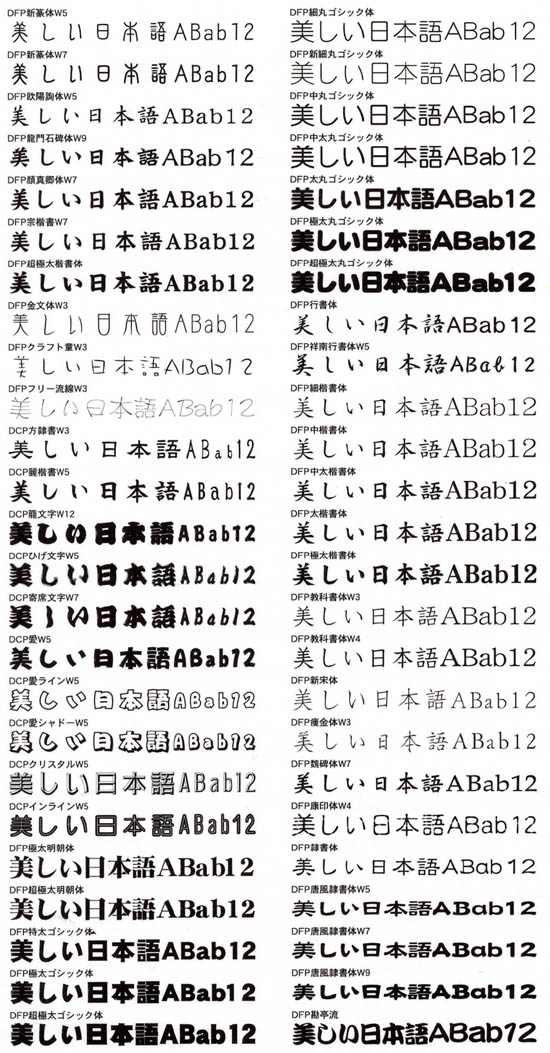 DFP新篆体W5
美しい日本語ABab12
DFP新篆体W7
美しい日本語ABab12
DFP欧陽詢体W5
美しい日本語ABab12
DFP龍門石碑体W9
美しい日本語ABab12
DFP顔真卿体W7
美しい日本語ABab12
DFP宗楷書W7
美しい日本語ABab12
DFP超極太楷書体
美しい日本語ABab12
DFP金文体W3
美しい日本語ABab12
DFPクラフト童W3
美しい日本語ABab12
DFPフリー流線W3
美しい日本語ABab12
DCP方隷書W3
美しい日本語ABab12
DCP麗楷書W5
美しい日本語ABab12
DCP龍文字W12
美しい日本語ABab12
DCPひげ文字W5
美しい日本語ABab12
DCP寄席文字W7
美しい日本語ABab12
DCP愛W5
美しい日本語ABab12
DCP愛ラインW5
美しい日本語ABab12
DCP愛シャドーW5
美しい日本語ABab12
DCPクリスタルW5
美しい日本語ABab12
DCPインラインW5
美しい日本語ABab12
DFP極太明朝体
美しい日本語ABab12
DFP超極太明朝体
美しい日本語ABab12
DFP特太ゴシック体
美しい日本語ABab12
DFP極太ゴシック体
美しい日本語ABab12
DFP超極太ゴシック体
美しい日本語ABab12
DFP細丸ゴシック体
美しい日本語ABab12
DFP新細丸ゴシック体
美しい日本語ABab12
DFP中丸ゴシック体
美しい日本語ABab12
DFP中太丸ゴシック体
美しい日本語ABab12
DFP太丸ゴシック体
美しい日本語ABab12
DFP極太丸ゴシック体
美しい日本語ABab12
DFP超極太丸ゴシック体
美しい日本語ABab12
DFP行書体
美しい日本語ABab12
DFP祥南行書体W5
美しい日本語ABab12
DFP細楷書体
美しい日本語ABab12
DFP中楷書体
美しい日本語ABab12
DFP中太楷書体
美しい日本語ABab12
DFP太楷書体
美しい日本語ABab12
DFP極太楷書体
美しい日本語ABab12
DFP教科書体W3
美しい日本語ABab12
DFP教科書体W4
美しい日本語ABab12
DFP新宋体
美しい日本語ABab12
DFP痩金体W3
美しい日本語ABab12
DFP魏碑体W7
美しい日本語ABab12
DFP康印体W4
美しい日本語ABab12
DFP隷書体
美しい日本語ABab12
DFP唐風隷書体W5
美しい日本語ABab12
DFP唐風隷書体W7
美しい日本語ABab12
DFP唐風隷書体W9
美しい日本語ABab12
DFP勘亭流
美しい日本語ABab12